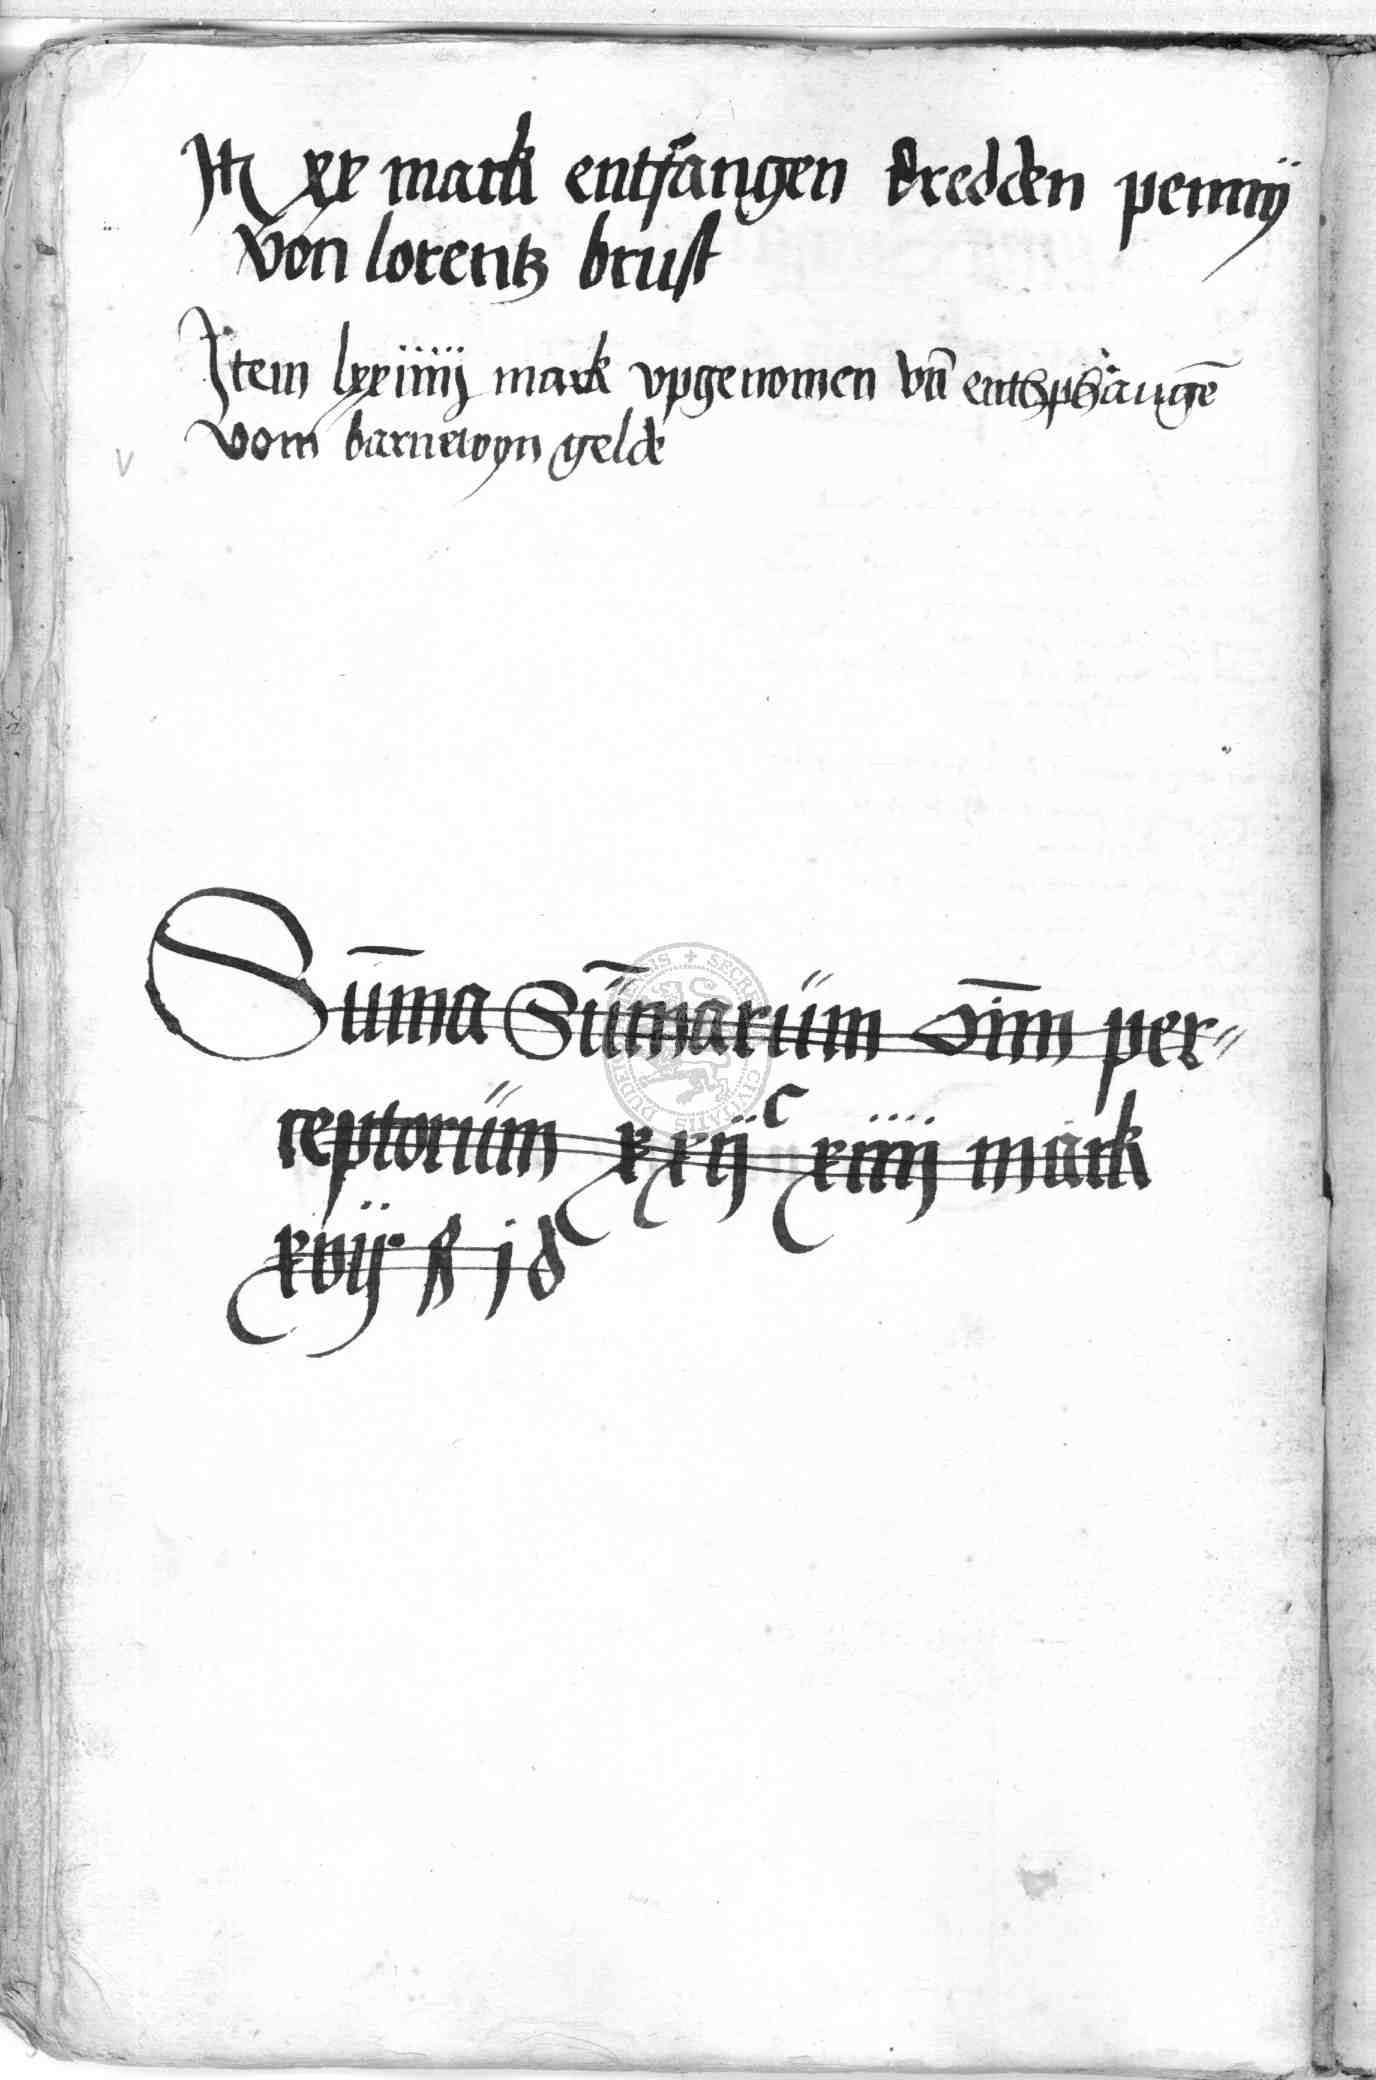 Itm xx mark entfangen dredden pennȷ̈
von lorentz brust
Item lxxiiij mark vpgenomen vn̄ enthphangē
vom barnewyn gelde
Sum̄a Sum̄arum om̄ per-
ceptorum xxij^c xiiij mark
xvij ß j d
SECR CIVITATIS